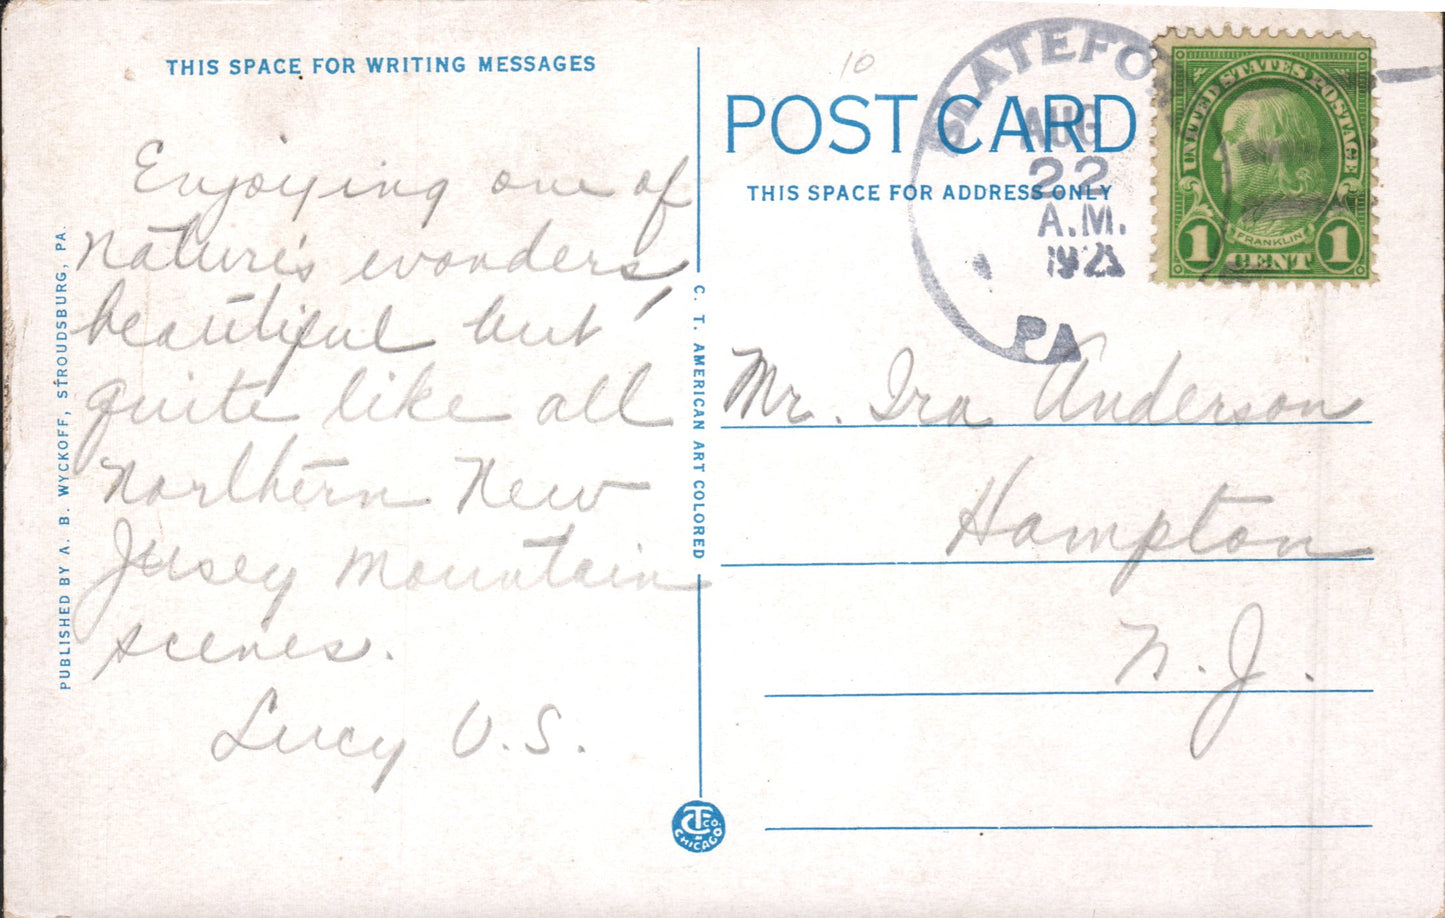 THIS SPACE FOR WRITING MESSAGES
Enjoying one of
nature's wonders,
beautiful but
quite like all
Northern New
Jersey mountain
scenes.
Lucy V.S.
PUBLISHED BY A. B. WYCKOFF, STROUDSBURG, PA.
C. T. AMERICAN ART COLORED
CT CO. CHICAGO
10
POST CARD
THIS SPACE FOR ADDRESS ONLY
SLATEFO
AUG
22
A.M.
PA
UNITED STATES POSTAGE
FRANKLIN
1 CENT 1
Mr. Ira Anderson
Hampton
N. J.